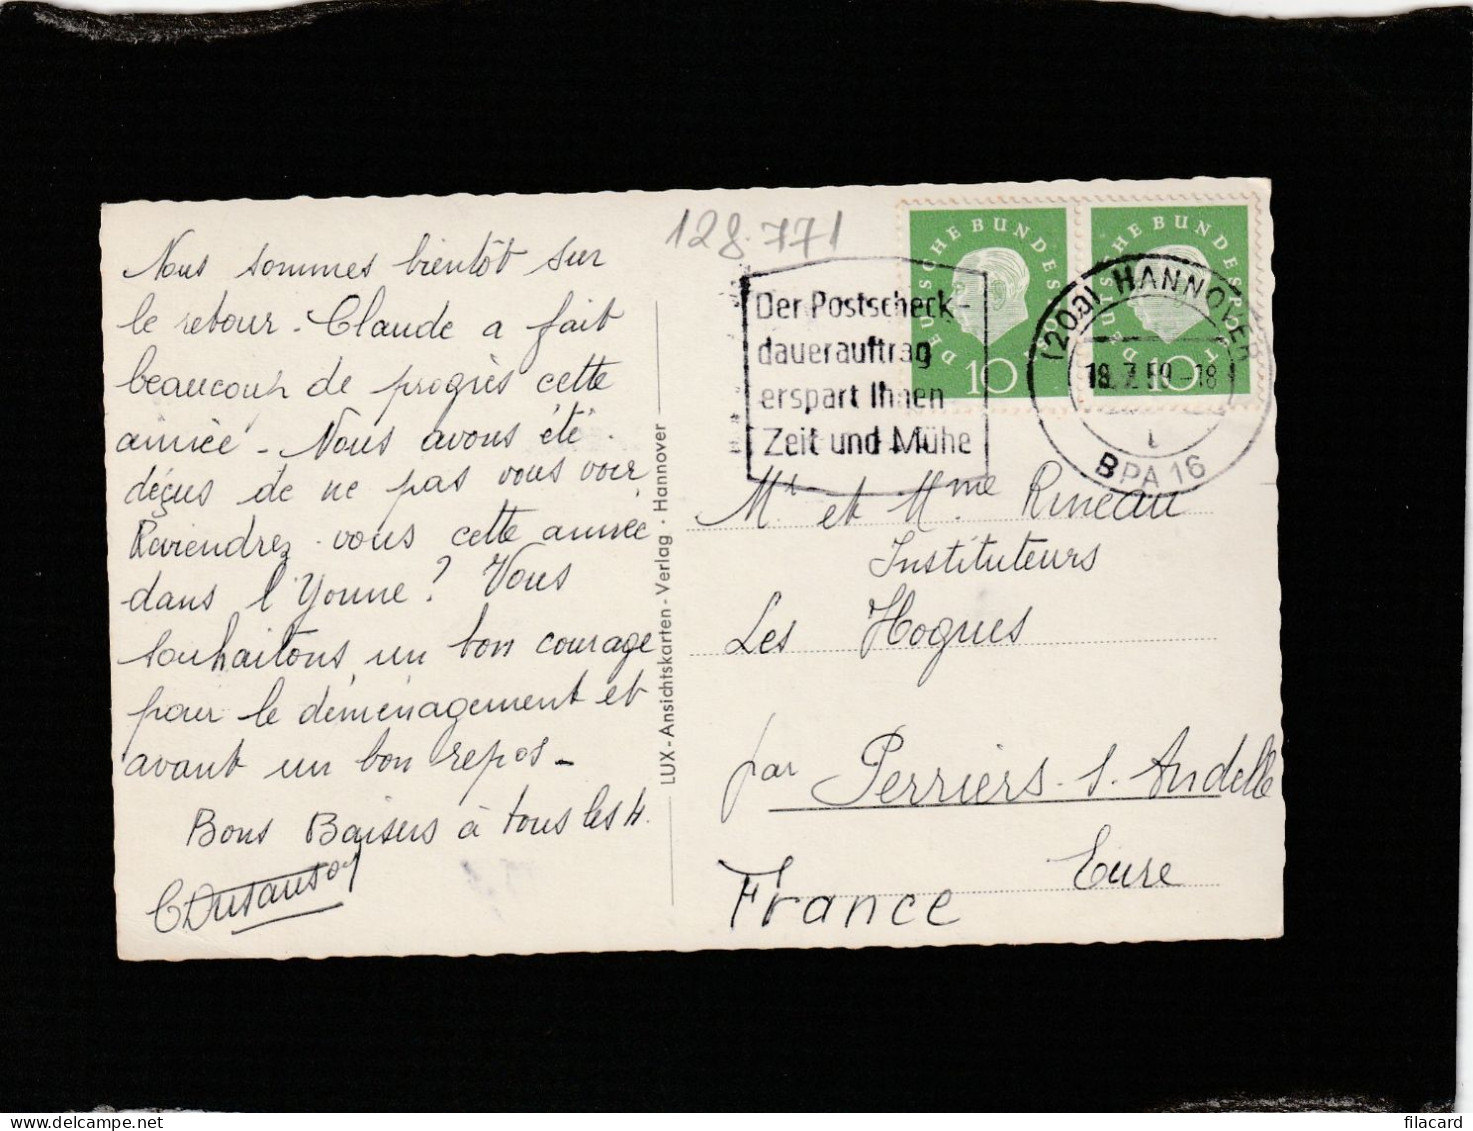 Nous sommes bientôt sur
le retour. Claude a fait
beaucoup de progrès cette
année - Nous avons été
déçus de ne pas vous voir
Reviendrez-vous cette année
dans l'Yonne? Vous
souhaitons un bon courage
pour le déménagement et
avant un bon repos -
Bons Baisers à tous les 4.
LUX - Ansichtskarten - Verlag · Hannover
128.771
Der Postscheck-
dauerauftrag
erspart Ihnen
Zeit und Mühe
DEUTSCHE BUNDESPOST
10
DEUTSCHE BUNDESPOST
10
(20a) HANNOVER
BPA 16
Mr et Mme Rineau
Instituteurs
Les Hogues
par Perriers-s-Andelle
Eure
France
filacard